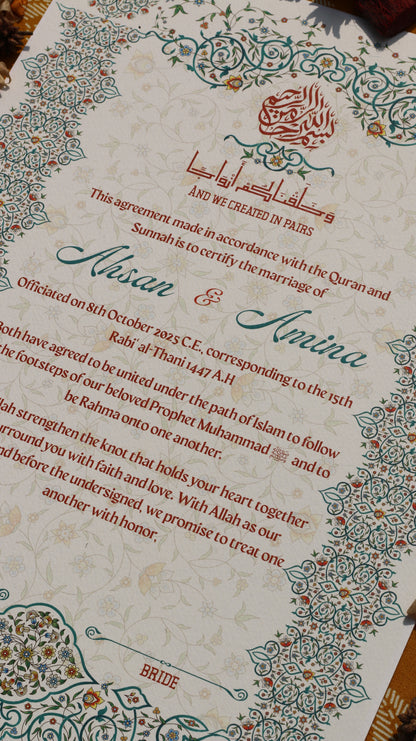 بسم الله الرحمن الرحيم
وخلقنكم أزواجا
AND WE CREATED IN PAIRS
This agreement made in accordance with the Quran and
Sunnah is to certify the marriage of
Ahsan & Amina
Officiated on 8th October 2025 C.E., corresponding to the 15th
Rabi' al-Thani 1447 A.H
Both have agreed to be united under the path of Islam to follow
the footsteps of our beloved Prophet Muhammad ﷺ and to
be Rahma onto one another.
strengthen the knot that holds your heart together
you with faith and love. With Allah as our
and before the undersigned, we promise to treat one
another with honor.
BRIDE